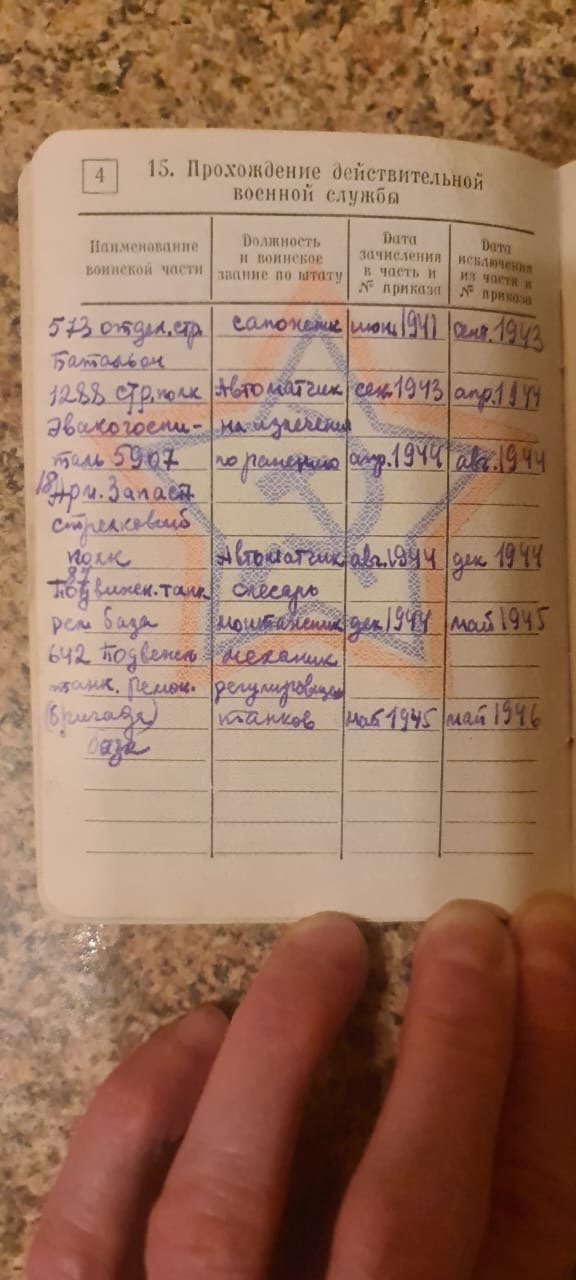 4
15. Прохождение действительной
военной службы
Наименование воинской части
Должность и воинское звание по штату
Дата зачисления в часть и № приказа
Дата исключения из части и № приказа
573 отдел. стр. сапожник июнь 1941 сент. 1943
Батальон
1288 стр. полк Автоматчик сен. 1943 апр. 1944
Эвакогоспи- на излечении
таль 5907 по ранению апр. 1944 авг. 1944
18 Арм. Запасн
стрелковый
полк Автоматчик авг. 1944 дек 1944
87
Подвижн. танк слесарь
рем база монтажник дек 1944 май 1945
642 Подвежн механик
танк. Ремон. регулировщик
(бригада) танков май 1945 май 1946
база